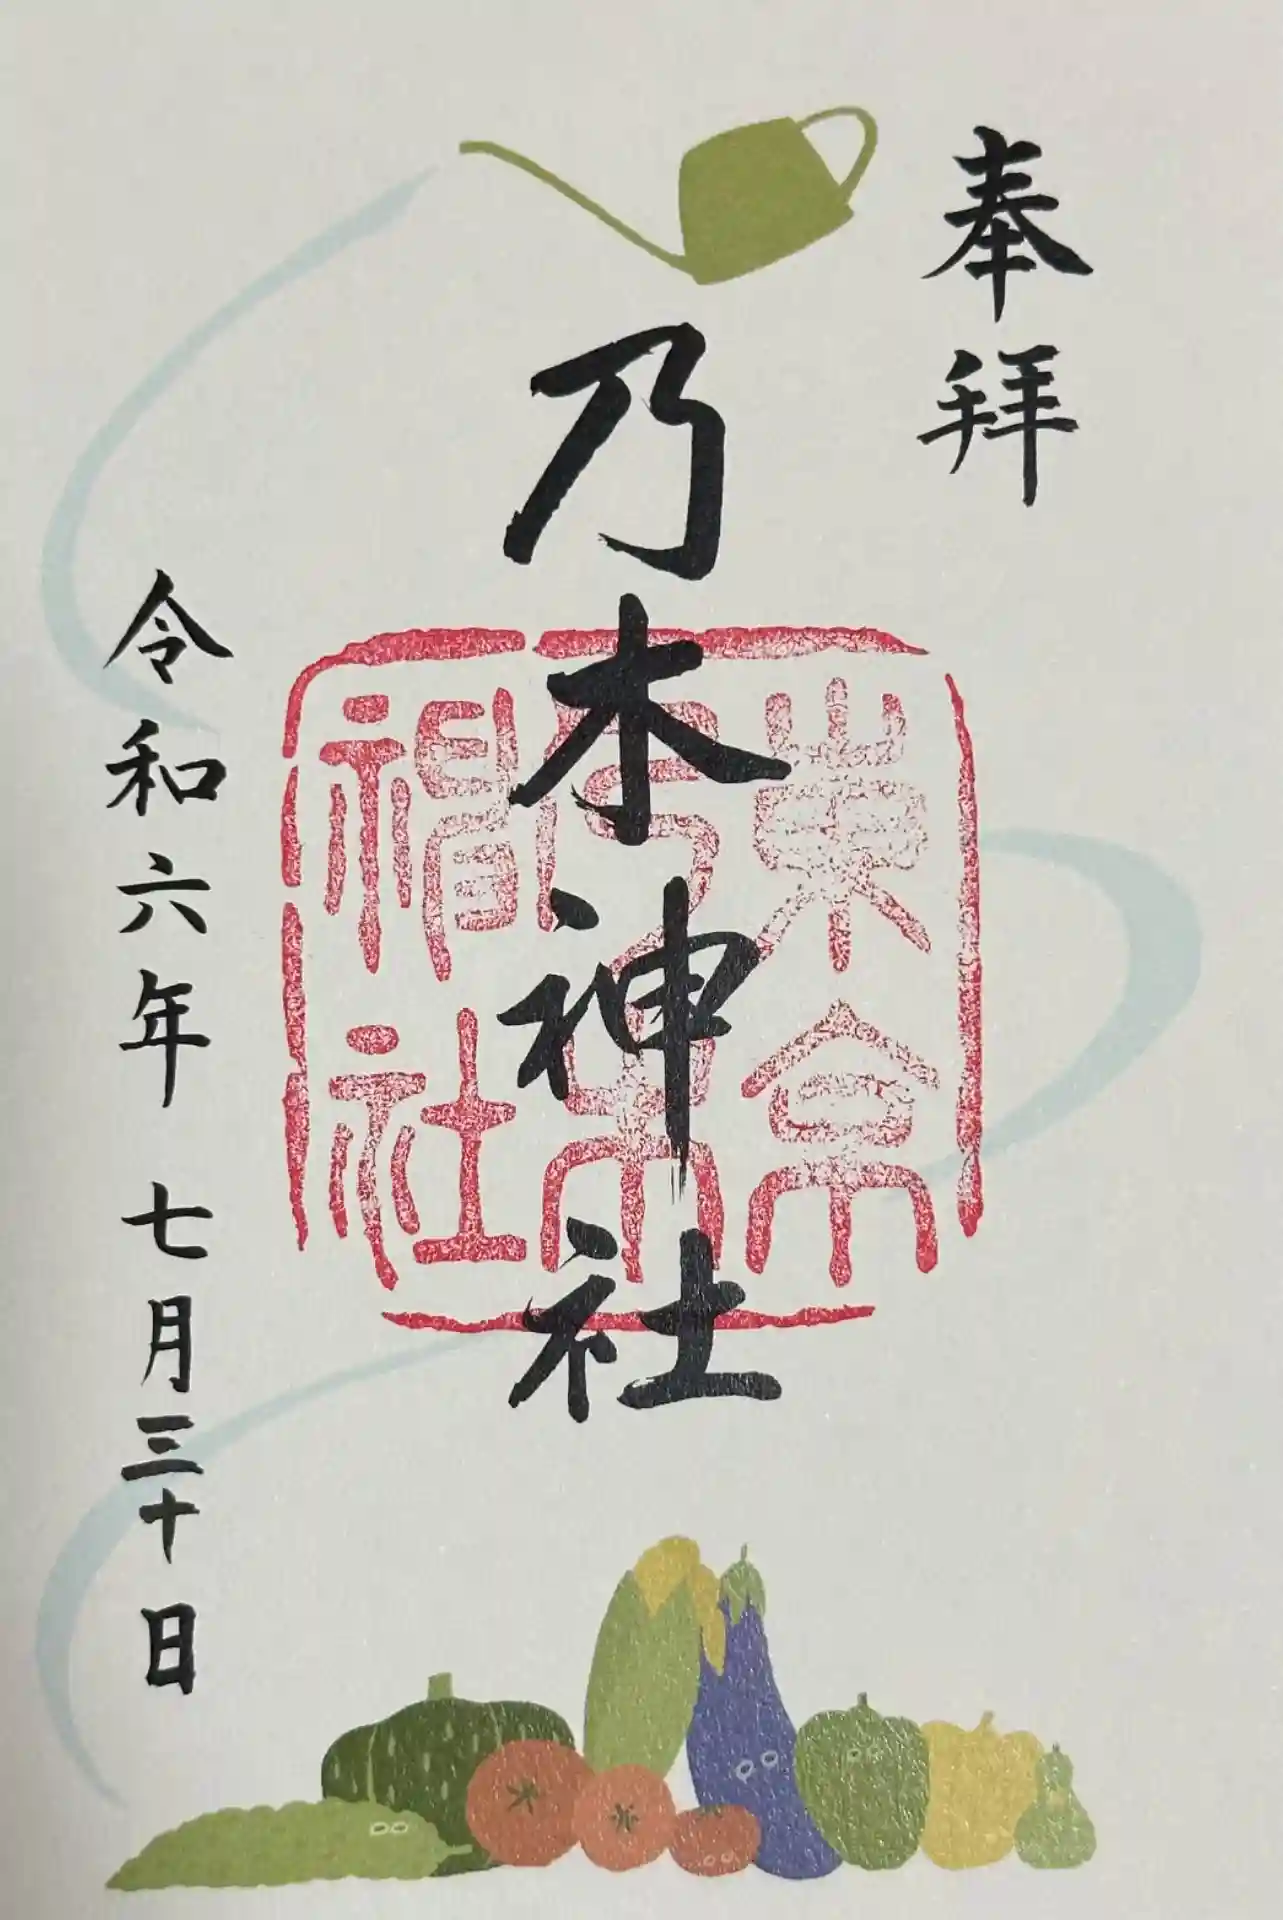 奉拝
乃木神社
東京
乃木
神社
令和六年 七月三十日